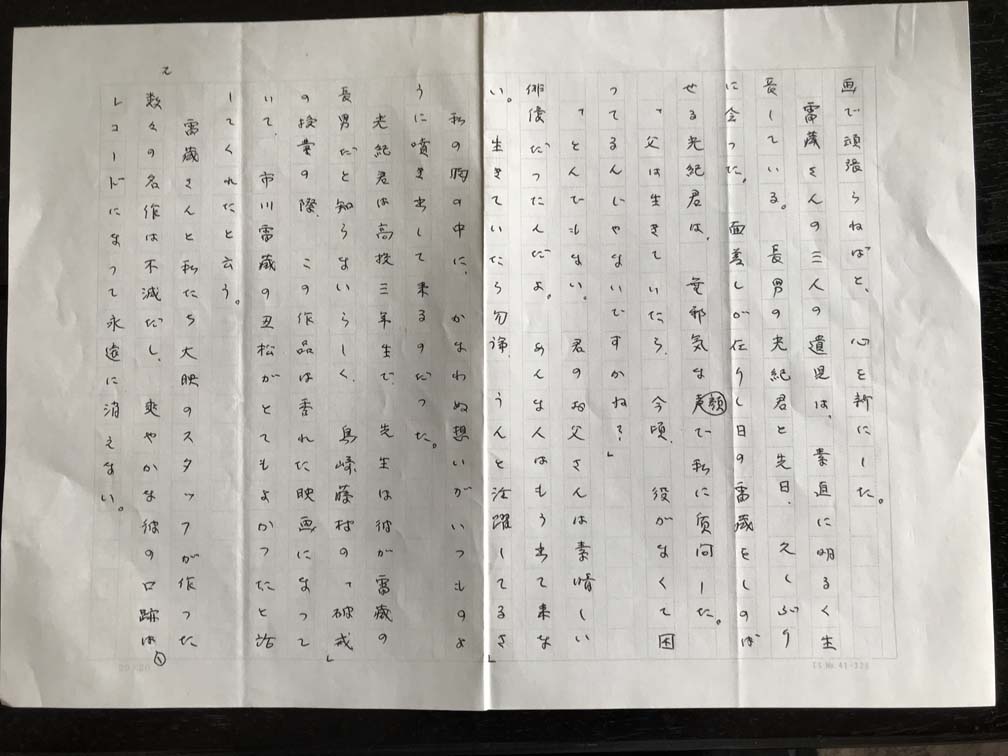 画で頑張らねばと、心を新にした。
雷蔵さんの三人の遺児は、素直に明るく生
長している。長男の光紀君と先日、久しぶり
に会った。面差しが在りし日の雷蔵をしのば
せる光紀君は、無邪気な顔で私に質問した。
「父は生きていたら、今頃、役がなくて困
ってるんじゃないですかね?」
「とんでもない。君のお父さんは素晴しい
俳優だったんだよ。あんな人はもう出て来な
い。生きていたら勿論、うんと活躍してるさ」
私の胸の中に、かなわぬ想いがいつものよ
うに噴き出して来るのだった。
光紀君は高校三年生で、先生は彼が雷蔵の
長男だと知らないらしく、島崎藤村の「破戒」
の授業の際、この作品は香れた映画になって
いて、市川雷蔵の丑松がとてもよかったと話
してくれたと云う。
雷蔵さんと私たち大映のスタッフが作った
数々の名作は不滅だし、爽やかな彼の口跡は、
レコードになって永遠に消えない。
え
20×20
IS No.41-328